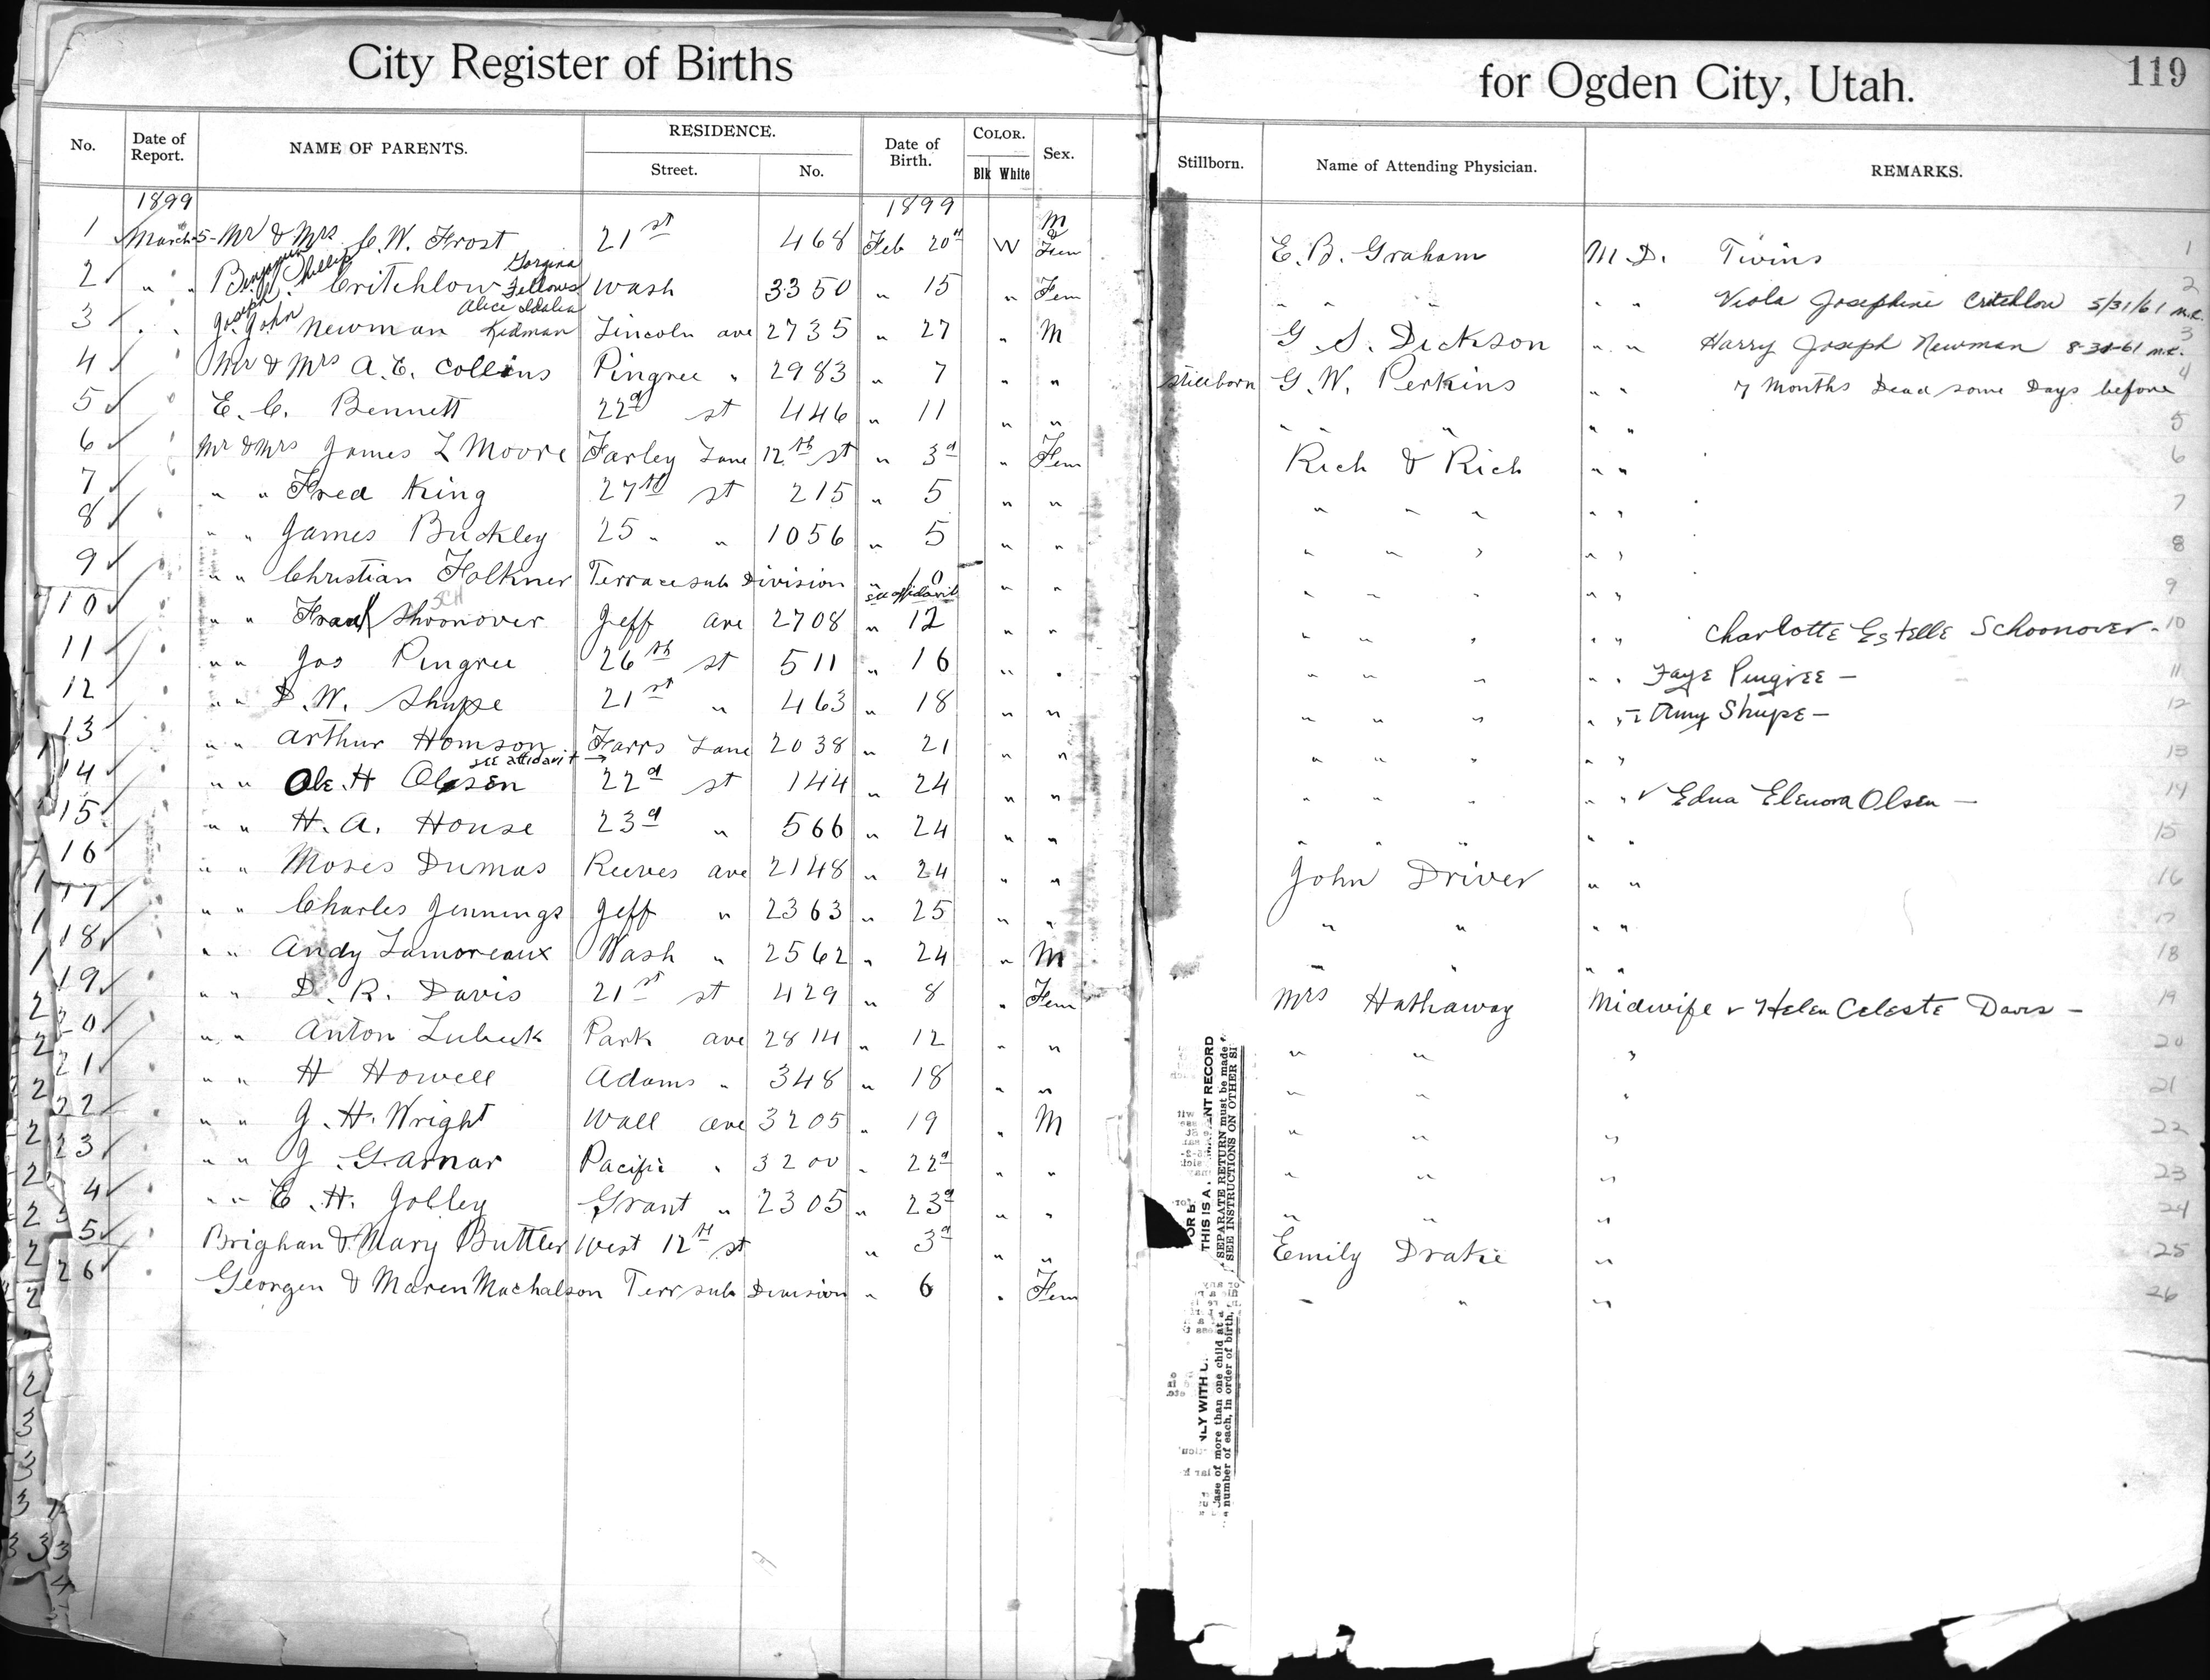 City Register of Births for Ogden City, Utah. 119
No. Date of Report. NAME OF PARENTS. RESIDENCE. Street. No. Date of Birth. COLOR. Blk White Sex. Stillborn. Name of Attending Physician. REMARKS.
1899 1899
1 March 5 Mr & Mrs C. W. Frost 21st 468 Feb 20th W M & Fem E. B. Graham M.D. Twins 1
2 " " Benjamin Phillip Critchlow Gorgina Fellows Wash 3350 " 15 " Fem " " " " " Viola Josephine Critchlow 5/31/61 2
3 " " Joseph Jos. John Newman Alice Idalia Kidman Lincoln ave 2735 " 27 " M G S. Dickson " " Harry Joseph Newman 8-31-61 3
4 " Mr & Mrs A. E. Collins Pingree " 2983 " 7 " " Stillborn G. W. Perkins " " 7 Months Dead some Days before 4
5 " E. C. Bennett 22d st 446 " 11 " " " " " " " 5
6 " Mr & Mrs James L Moore Farley Lane 12th st " 3d " Fem Rich & Rich " " 6
7 " " " Fred King 27th st 215 " 5 " " " " " " " 7
8 " " " James Buckley 25 " " 1056 " 5 " " " " " " " 8
9 " " " Christian Folkner Terrace sub Division " 10 " " " " " " " 9
see affidavit
10 " " " Frank SCH Shoonover Jeff ave 2708 " 12 " " " " " " " Charlotte Estelle Schoonover - 10
11 " " " Jos Pingree 26th st 511 " 16 " " " " " " " Faye Pingree - 11
12 " " " D. W. Shupe 21st " 463 " 18 " " " " " " " Amy Shupe - 12
13 " " " Arthur Homson Farrs Lane 2038 " 21 " " " " " " " 13
see affidavit →
14 " " " Ole. H Olsen 22d st 144 " 24 " " " " " " " Edna Elenora Olsen - 14
15 " " " H. A. House 23d " 566 " 24 " " " " " " " 15
16 " " " Moses Dumas Reeves ave 2148 " 24 " " John Driver " " 16
17 " " " Charles Jennings Jeff " 2363 " 25 " " " " " " 17
18 " " " Andy Lamoreaux Wash " 2562 " 24 " M " " " " 18
19 " " " D. R. Davis 21st st 429 " 8 " Fem Mrs Hathaway Midwife Helen Celeste Davis - 19
20 " " " Anton Lubeck Park ave 2814 " 12 " " " " " 20
21 " " " H Howell Adams " 348 " 18 " " " " " 21
22 " " " J. H. Wright Wall ave 3205 " 19 " M " " " 22
23 " " " J. Garnar Pacific " 3200 " 22d " " " " " 23
4 " " " E. H. Jolley Grant " 2305 " 23d " " " " " 24
5 " Brighan & Mary Buttler West 12th st " 3d " " Emily Drake " 25
26 " Georgen & Maren Machalson Terr sub Division " 6 " Fem " " " 26
THIS IS A
NT RECORD
SEPARATE RETURN must be made
SEE INSTRUCTIONS ON OTHER SI
NLY WITH
case of more than one child at a
number of each, in order of birth,